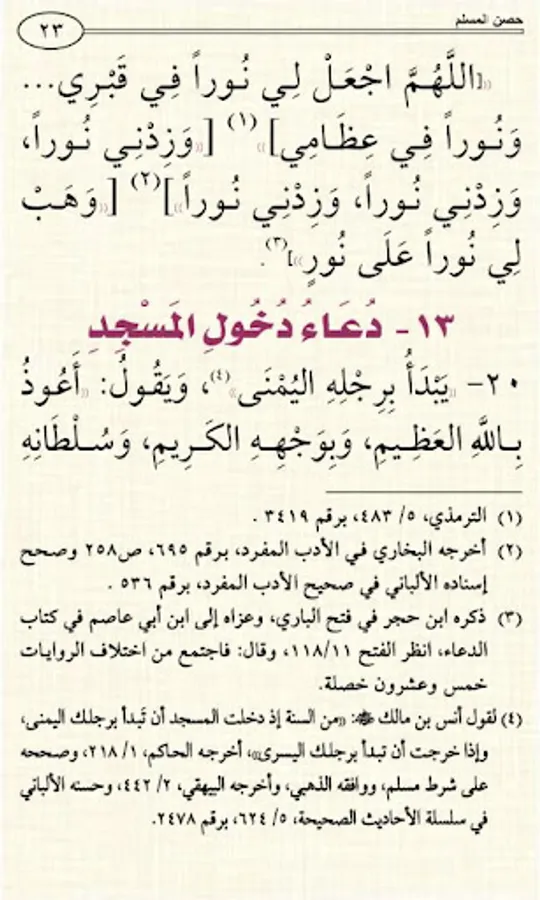 حصن المسلم
٢٣
«[اللَّهُمَّ اجْعَلْ لِي نُوراً فِي قَبْرِي...
وَنُوراً فِي عِظَامِي]»(١) [«وَزِدْنِي نُوراً،
وَزِدْنِي نُوراً، وَزِدْنِي نُوراً»](٢) [«وَهَبْ
لِي نُوراً عَلَى نُورٍ»](٣).
١٣- دُعَاءُ دُخُولِ المَسْجِدِ
٢٠- «يَبْدَأُ بِرِجْلِهِ اليُمْنَى»(٤)، وَيَقُولُ: «أَعُوذُ
بِاللَّهِ العَظِيمِ، وَبِوَجْهِهِ الكَرِيمِ، وَسُلْطَانِهِ
(١) الترمذي، ٥/ ٤٨٣، برقم ٣٤١٩ .
(٢) أخرجه البخاري في الأدب المفرد، برقم ٦٩٥، ص٢٥٨ وصحح
إسناده الألباني في صحيح الأدب المفرد، برقم ٥٣٦ .
(٣) ذكره ابن حجر في فتح الباري، وعزاه إلى ابن أبي عاصم في كتاب
الدعاء، انظر الفتح ١١٨/١١، وقال: فاجتمع من اختلاف الروايات
خمس وعشرون خصلة.
(٤) لقول أنس بن مالك ﷺ: «من السنة إذ دخلت المسجد أن تَبدأ برجلك اليمنى،
وإذا خرجت أن تبدأ برجلك اليسرى»، أخرجه الحاكم، ١/ ٢١٨، وصححه
على شرط مسلم، ووافقه الذهبي، وأخرجه البيهقي، ٢/ ٤٤٢، وحسنه الألباني
في سلسلة الأحاديث الصحيحة، ٥/ ٦٢٤، برقم ٢٤٧٨.